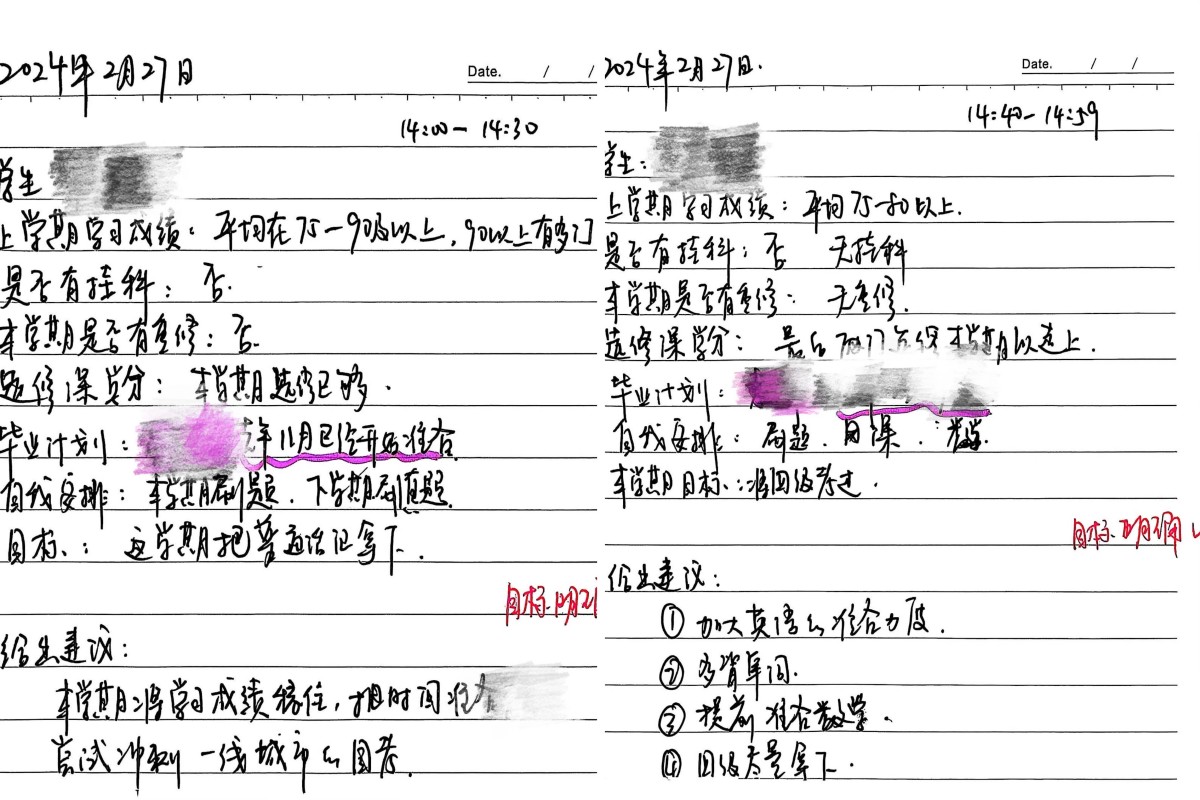 2024年2月27日
Date. / /
14:00 - 14:30
学生
上学期学习成绩：平均在75-90及以上，90以上有多门
是否有挂科：否.
本学期是否有重修：否.
选修课学分：本学期选修已够.
毕业计划：去年11月已经开始准备
自我安排：本学期刷题、下学期刷真题
目标：这学期把普通话证拿下.
目标.12月21
给出建议：
本学期将学习成绩稳住，抽时间准备
尝试冲刺一线城市的国考.
2024年2月27日.
Date. / /
14:40-14:59
学生：
上学期学习成绩：平均75-80以上.
是否有挂科：否 无挂科
本学期是否有重修：无重修.
选修课学分：最后两门 本学期以选上.
毕业计划：
自我安排：刷题、网课、
本学期目标：将四级考过.
目标.
给出建议：
① 加大英语的准备力度.
② 多背单词.
③ 提前准备数学.
④ 四级尽量拿下.